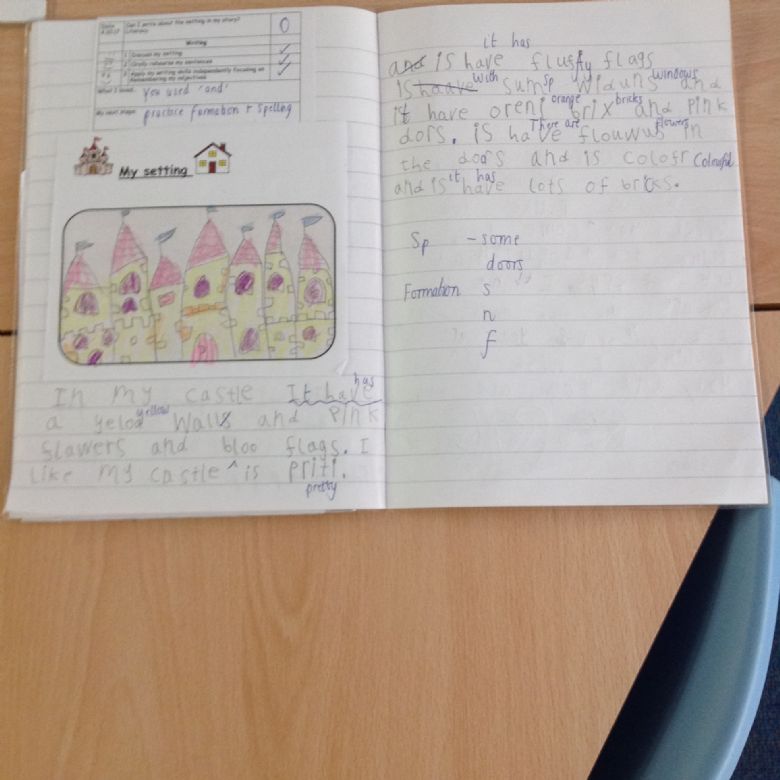 Can I write about the setting in my story?
Literacy
Writing
1 Discuss my setting
2 Orally rehearse my sentences
3 Apply my writing skills independently focusing on
Remembering my adjectives
you used 'and'
My next steps: practice formation + spelling
My setting
In my castle It have has
a yelod yellow walls and Pink
flawers and bloo flags. I
like my castle ^ is priti.
pretty
it has
and is have fluffy flags
is haave with sum sp widuns windows and
it have oreni orange brix bricks and pink
dors. is have There are flouwus flowers in
the doas and is colofr colourful
and is it has have lots of bricks.
Sp - some
doors
Formation s
n
f